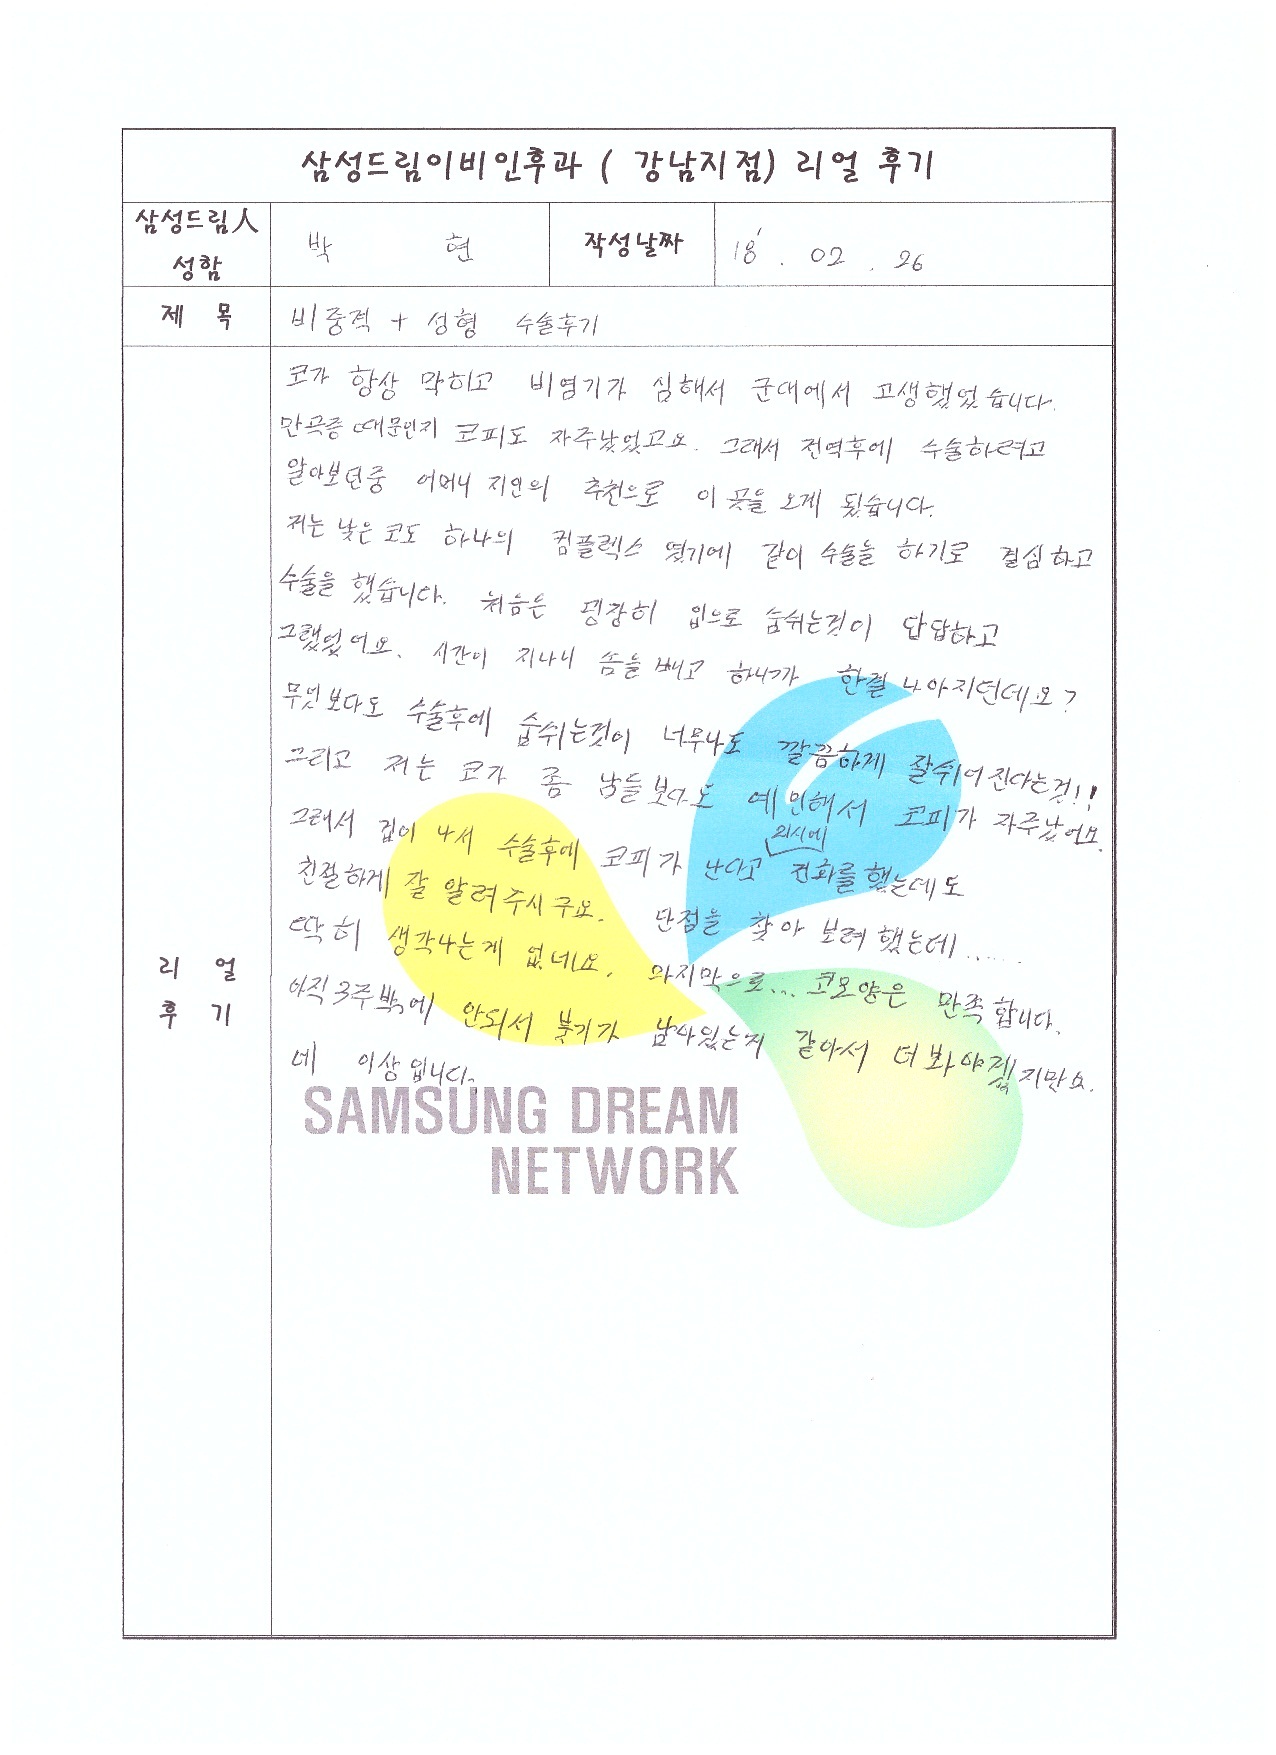 삼성드림이비인후과 ( 강남지점) 리얼 후기
삼성드림人
성함
박 현
작성날짜
18'. 02. 26
제 목
비중격 + 성형 수술후기
리 얼
후 기
코가 항상 막히고 비염기가 심해서 군대에서 고생했었습니다.
만곡증 때문인지 코피도 자주났었고요. 그래서 전역후에 수술하려고
알아보던중 어머니 지인의 추천으로 이 곳을 오게 됬습니다.
저는 낮은 코도 하나의 컴플렉스 였기에 같이 수술을 하기로 결심하고
수술을 했습니다. 처음은 굉장히 입으로 숨쉬는것이 답답하고
그랬었어요. 시간이 지나니 솜을 빼고 하니까 한결 나아지던데요?
무엇보다도 수술후에 숨쉬는것이 너무나도 깔끔하게 잘쉬어진다는것!!
그리고 저는 코가 좀 남들보다도 예민해서 코피가 자주났어요.
그래서 겁이 나서 수술후에 코피가 난다고 21시에 전화를 했는데도
친절하게 잘 알려주시구요. 단점을 찾아 보려 했는데......
딱히 생각나는게 없네요. 마지막으로... 코모양은 만족합니다.
아직 3주밖에 안되서 붓기가 남아있는지 같아서 더 봐야겠지만요.
네 이상입니다.
SAMSUNG DREAM
NETWORK